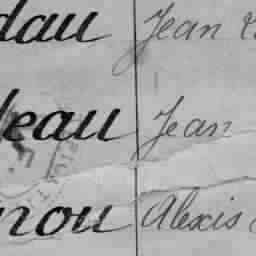 dau Jean
eau Jean
rou Alexis